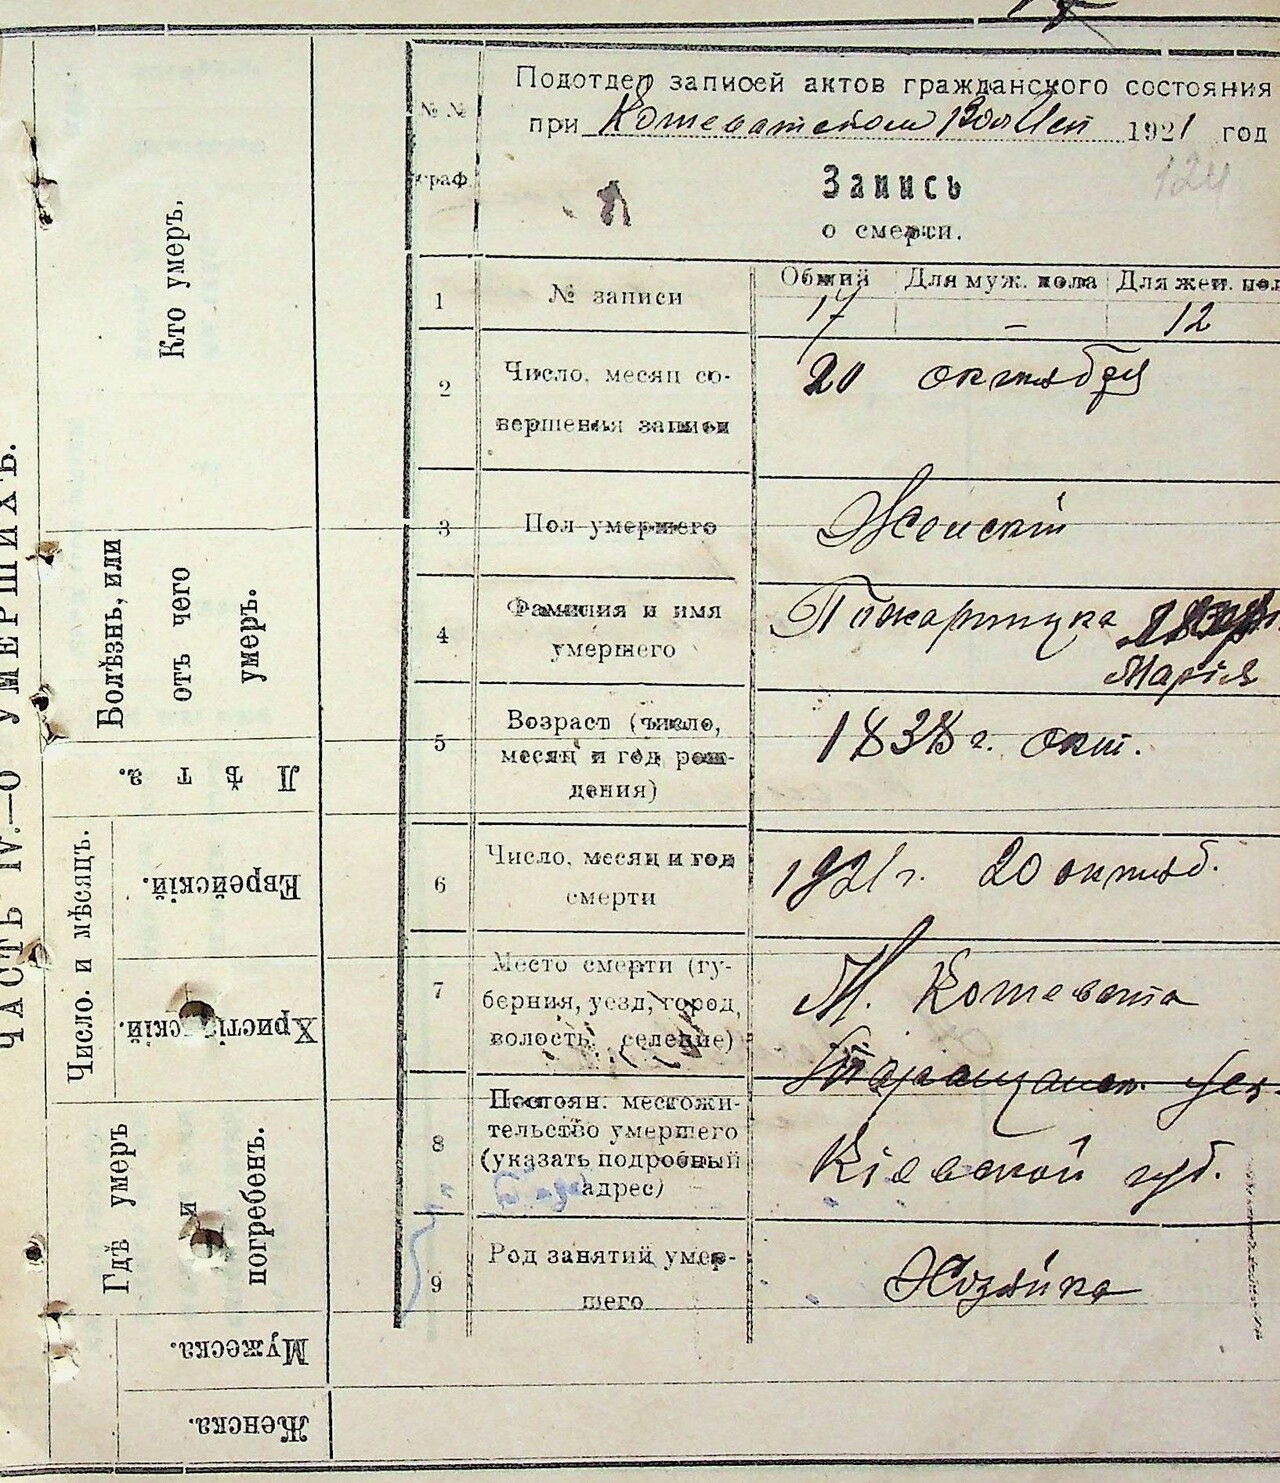 Подотдел записей актов гражданского состояния
при Кошеватском ВолИсп 1921 год
№ № граф.
124
Запись
о смерти.
1 № записи
Общий Для муж. пола Для жен. пол
17 – 12
2 Число, месяц со-
вершения записи
20 октября
3 Пол умершего
Женскій
4 Фамилия и имя
умершего
Пожарницка
Марія
5 Возраст (число,
месяц и год рож-
дения)
1838 г. окт.
6 Число, месяц и год
смерти
1921 г. 20 октяб.
7 Место смерти (гу-
берния, уезд, город,
волость, селение)
М. Кошевата
Таращанск. уез.
8 Постоян. местожи-
тельство умершего
(указать подробный
адрес)
Кіевской губ.
9 Род занятий умер-
шего
Хозяйка
ЧАСТЬ IV.—О УМЕРШИХЪ.
Кто умеръ.
Болѣзнь, или
отъ чего
умеръ.
Лѣта.
Число и мѣсяцъ.
Еврейскій.
Христіанскій.
Гдѣ умеръ
и
погребенъ.
Мужеска.
Женска.